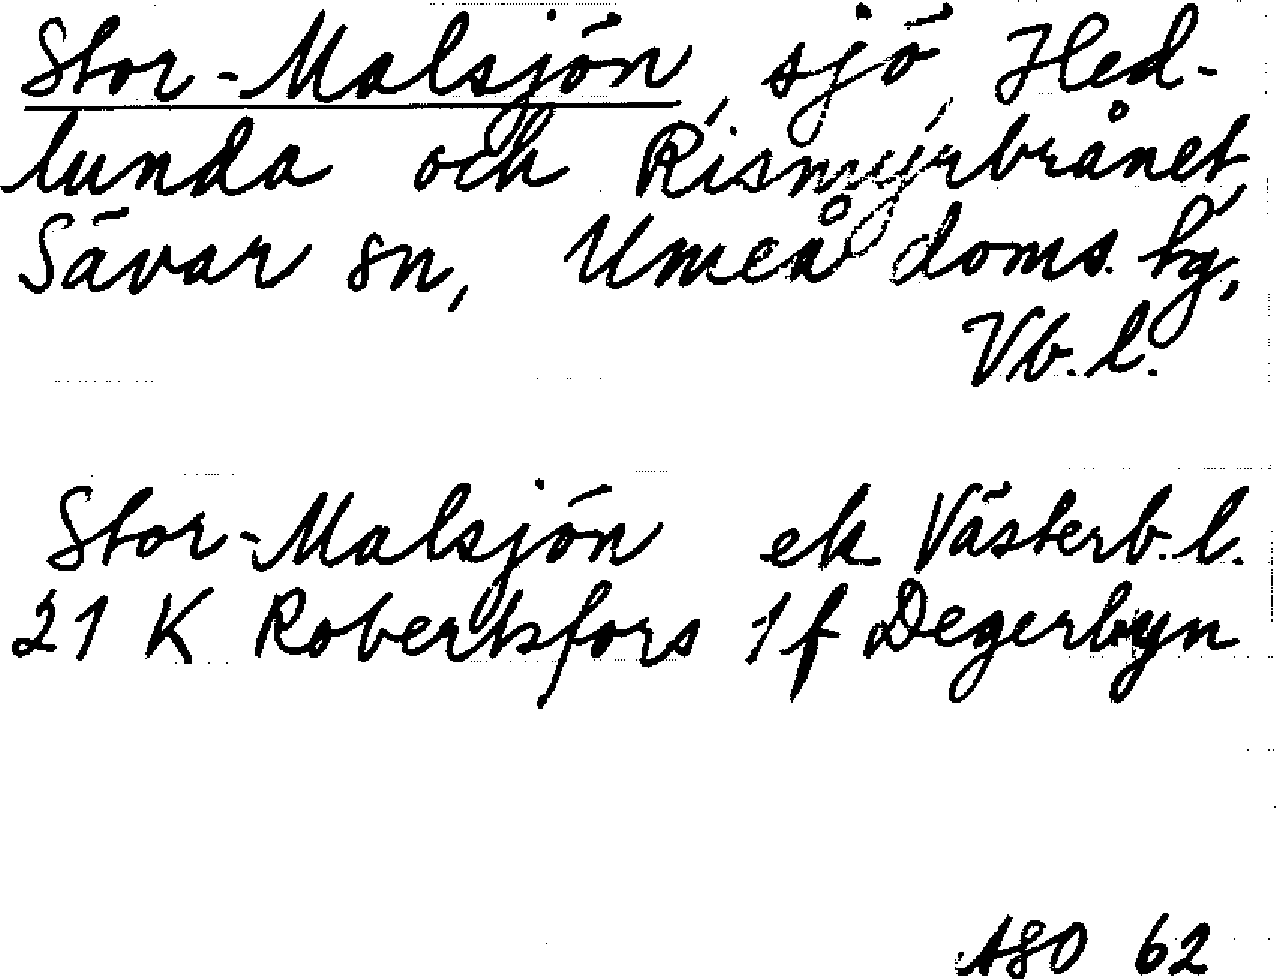 Stor-Malsjön, sjö, Hed-
lunda och Rismyrbrånet,
Sävar sn, Umeå doms. hg,
Vb. l.
Stor-Malsjön ek Västerb. l.
21 K Robertsfors 1 f Degerbyn
ASO 62